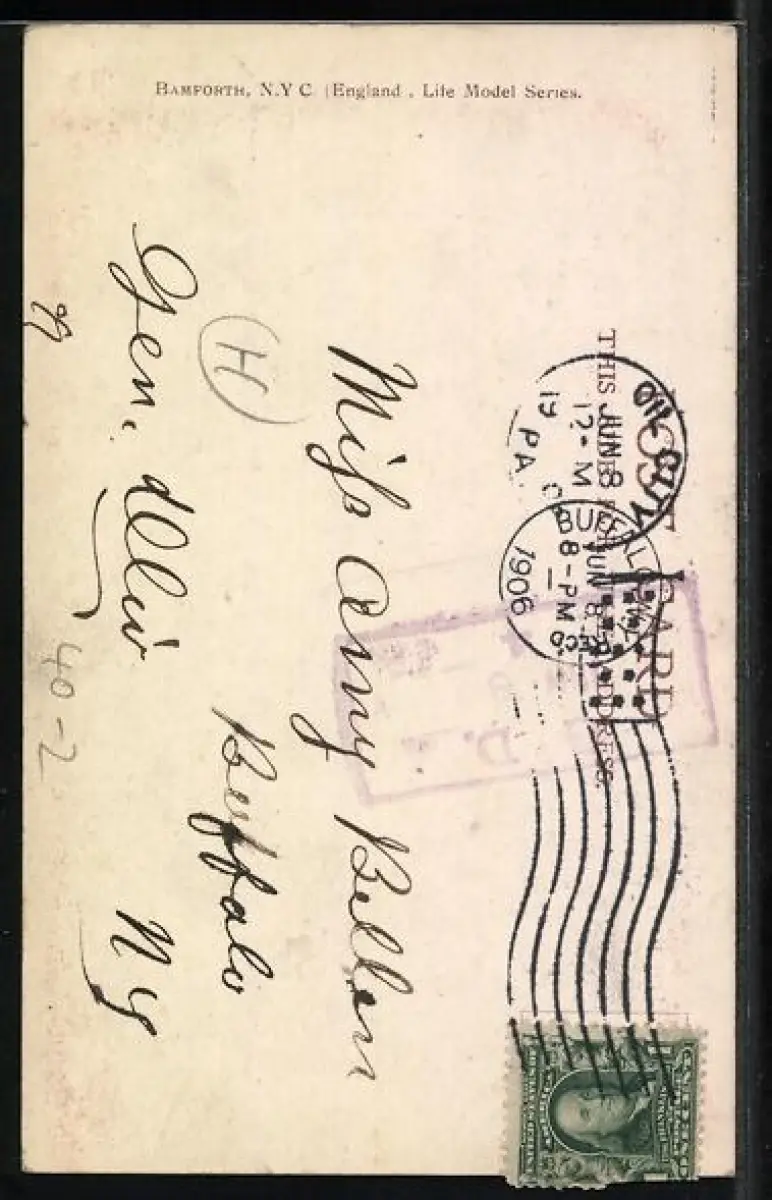 BAMFORTH, N.Y C (England, Life Model Series.
POST CARD
THIS ADDRESS.
OIL CITY
JUN 8
12-M
19
PA
BUFFALO, N.Y.
JUN 8
8-PM
1906
REC'D
D.
Miss Amy
Buffalo
Gen. Deliv
N Y
H
40-2